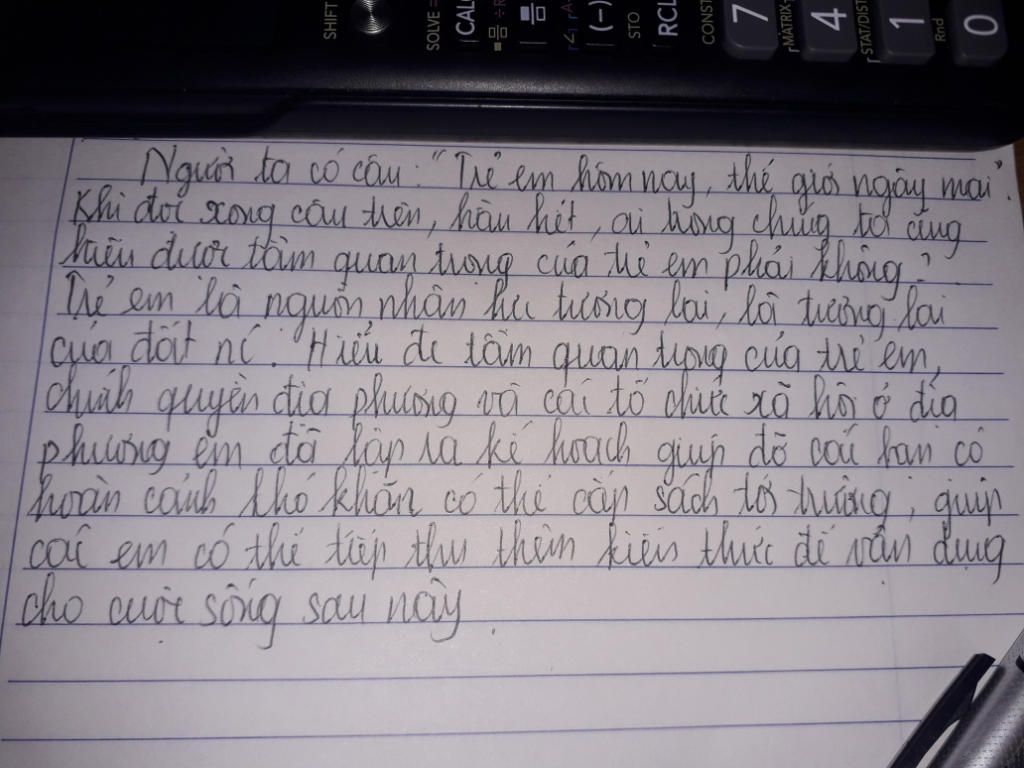 SHIFT
SOLVE =
CALC
STO
(-)
RCL
CONST
7
MATRIX
4
STAT/DIST
1
Rnd
0
Người ta có câu: "Trẻ em hôm nay, thế giới ngày mai".
Khi đọc xong câu trên, hầu hết, ai trong chúng ta cũng
hiểu được tầm quan trọng của trẻ em phải không?
Trẻ em là nguồn nhân lực tương lai, là tương lai
của đất nc. Hiểu đc tầm quan trọng của trẻ em,
chính quyền địa phương và các tổ chức xã hội ở địa
phương em đã lập ra kế hoạch giúp đỡ các bạn có
hoàn cảnh khó khăn có thể cắp sách tới trường, giúp
các em có thể tiếp thu thêm kiến thức để vận dụng
cho cuộc sống sau này.